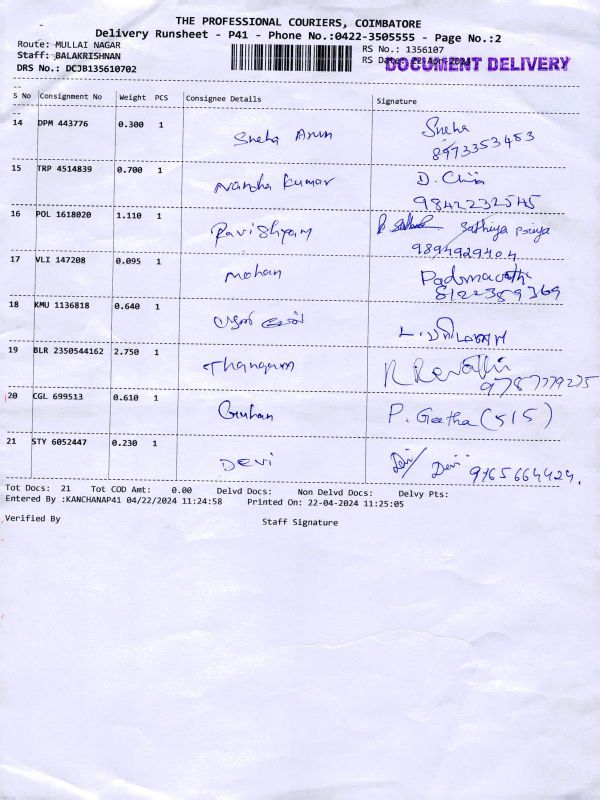 THE PROFESSIONAL COURIERS, COIMBATORE
Delivery Runsheet - P41 - Phone No.:0422-3505555 - Page No.:2
Route: MULLAI NAGAR
RS No.: 1356107
Staff: BALAKRISHNAN
RS Date: 22-Apr-2024
DOCUMENT DELIVERY
DRS No.: DCJB135610702
S No Consignment No Weight PCS Consignee Details Signature
14 DPM 443776 0.300 1 Sneha Arun Sneha
8973353453
15 TRP 4514839 0.700 1 Nandha Kumar D.
9842232545
16 POL 1618020 1.110 1 Ravi Shyam Sathiya Priya
9894929404
17 VLI 147208 0.095 1 Mohan Padmavathi
8122389369
18 KMU 1136818 0.640 1
19 BLR 2350544162 2.750 1 Thangam R Revathi
9787779275
20 CGL 699513 0.610 1 Guhan P. Geetha (515)
21 STY 6052447 0.230 1 DEVI Devi Devi 9765664424.
Tot Docs: 21 Tot COD Amt: 0.00 Delvd Docs: Non Delvd Docs: Delvy Pts:
Entered By :KANCHANAP41 04/22/2024 11:24:58 Printed On: 22-04-2024 11:25:05
Verified By Staff Signature